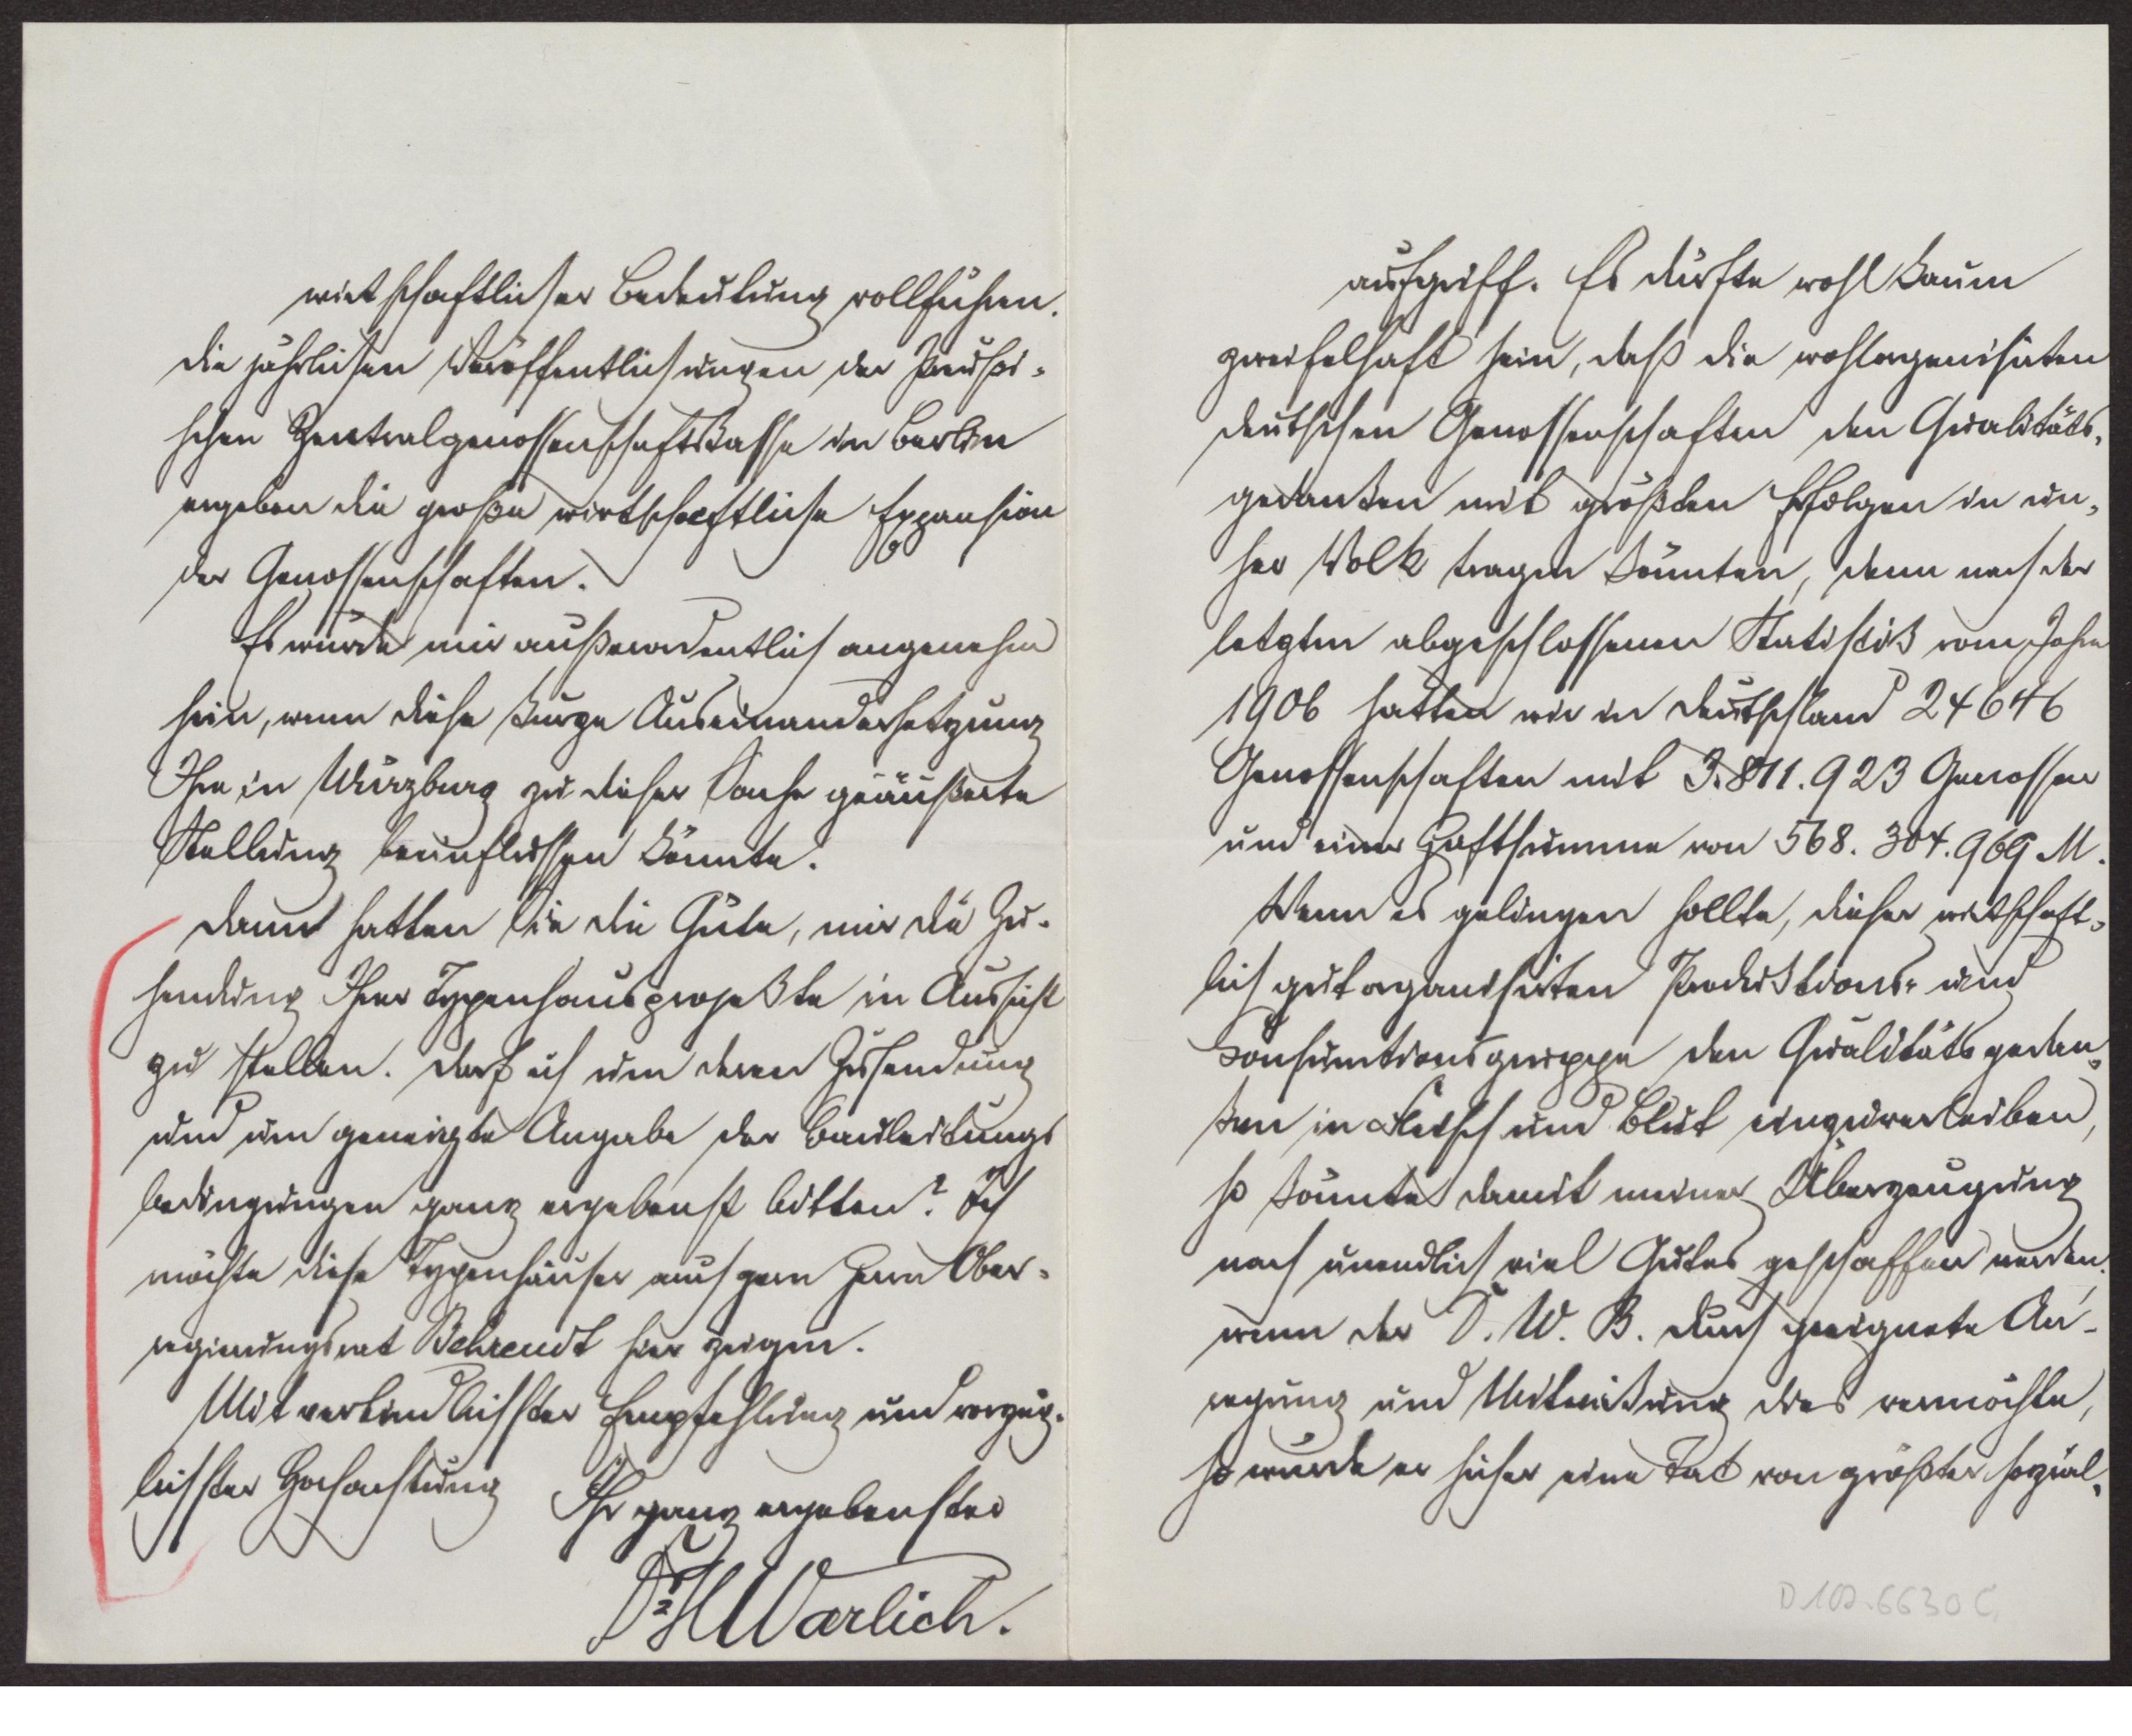 aufgriff. Es dürfte wohl kaum
zweifelhaft sein, daß die wohlorganisirten
deutschen Genossenschaften den Qualitäts-
gedanken mit größten Erfolgen in un-
ser Volk tragen könnten, denn nach der
letzten abgeschlossenen Statistik vom Jahre
1906 hatten wir in Deutschland 24646
Genossenschaften mit 3.811.923 Genossen
und einer Haftsumme von 568.304.969 M.
Wenn es gelingen sollte, dieser wirtschaft-
lich gut organisirten Produktions- und
Konsumtionsgruppe den Qualitätsgedan-
ken in Fleisch und Blut einzuverleiben,
so könnte damit meiner Überzeugung
nach unendlich viel Gutes geschaffen werden.
wenn der D. W. B. durch geeignete An-
regung und Mitwirkung dies vermöchte,
so würde er sicher eine Tat von größter sozial-
D 102.6630 C
wirtschaftlicher Bedeutung vollführen.
Die jährlichen Veröffentlichungen der Preußi-
schen Zentralgenossenschaftskasse in Berlin
ergeben die große wirtschaftliche Expansion
der Genossenschaften.
Es würde mir außerordentlich angenehm
sein, wenn diese kurze Auseinandersetzung
Ihre in Würzburg zu dieser Sache geäußerte
Stellung beeinflussen könnte.
Dann hatten Sie die Güte, mir die Zu-
sendung Ihrer Typenhausprojekte in Aussicht
zu stellen. Darf ich um deren Zusendung
und um geneigte Angabe der Bauleitungs
bedingungen ganz ergebenst bitten? Ich
möchte diese Typenhäuser auch gern Herrn Ober-
regierungsrat Behrendt hier zeigen.
Mit verbindlichster Empfehlung und vorzüg-
lichster Hochachtung Ihr ganz ergebenster
Dr H Warlich.